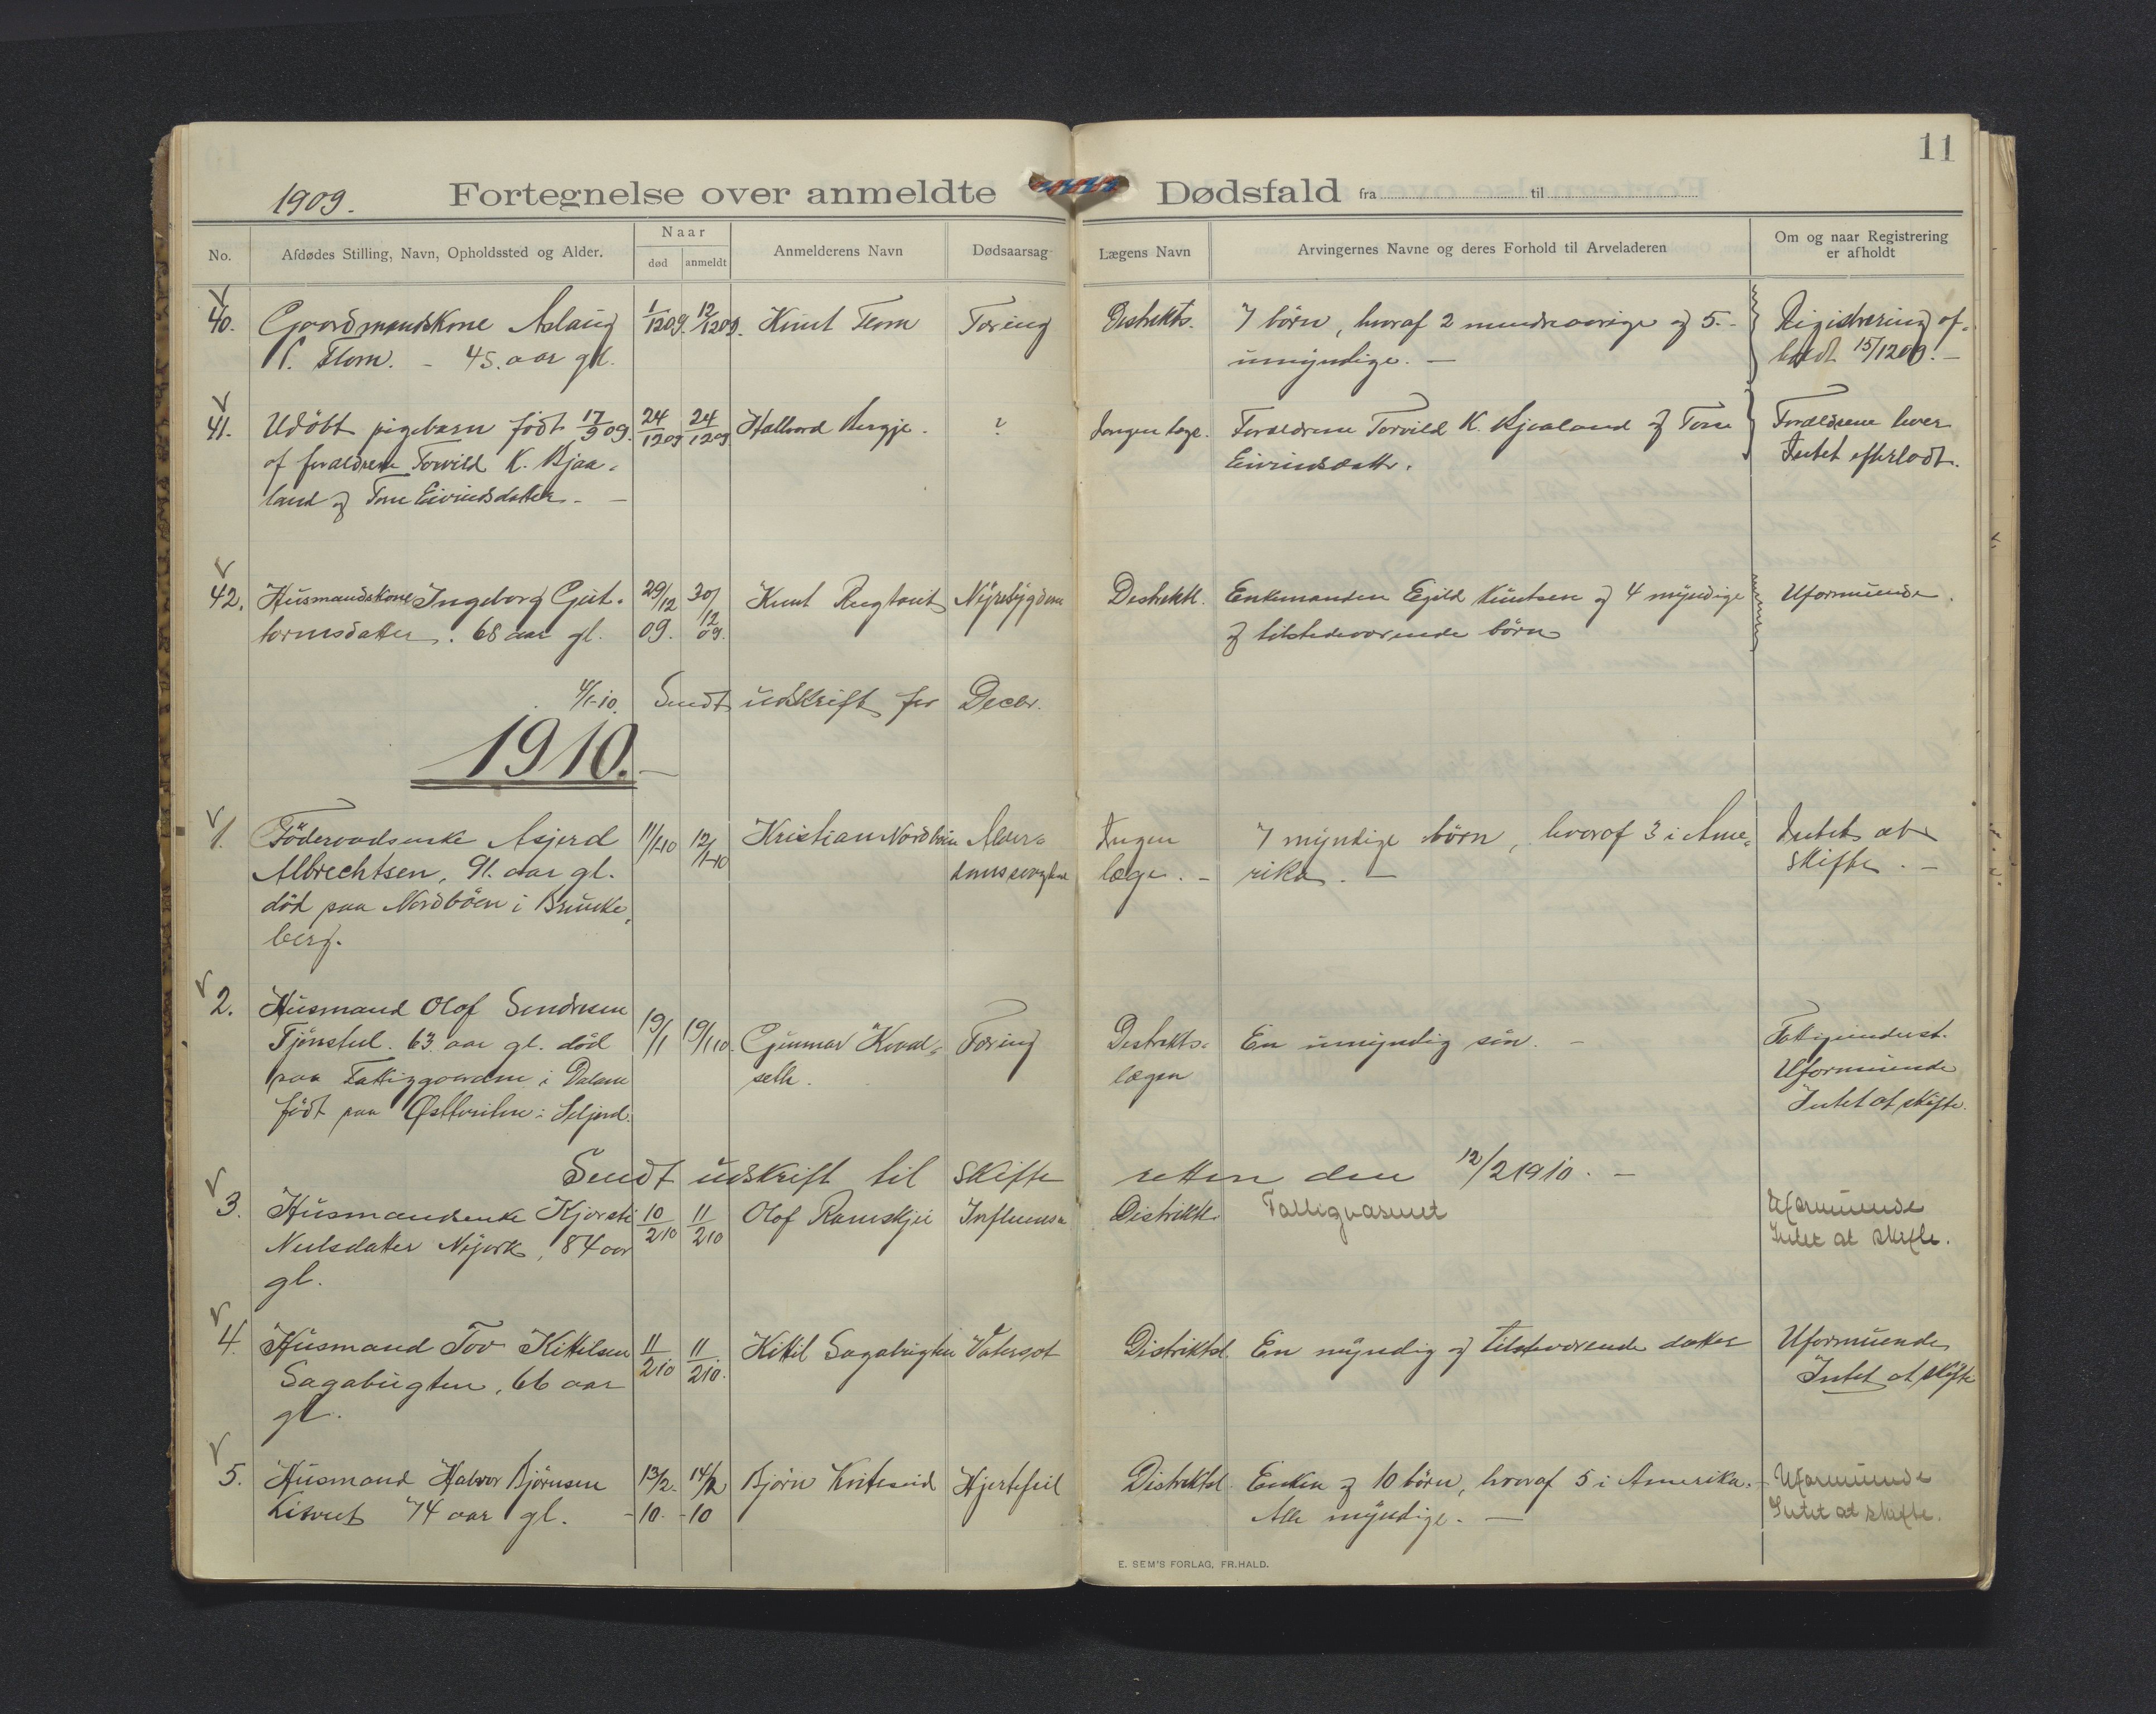 11
1909. Fortegnelse over anmeldte Dødsfald fra til
No. Afdødes Stilling, Navn, Opholdssted og Alder. Naar død anmeldt Anmelderens Navn Dødsaarsag Lægens Navn Arvingernes Navne og deres Forhold til Arveladeren Om og naar Registrering er afholdt
40. Gaardmandskone Aslaug 1/12 09. 12/12 09. Knut Flom Tæring Distrikts. 7 børn, hvoraf 2 mindreaarige og 5 Rigistrering af-
Flom. - 45. aar gl. umyndige. - holdt 15/12 09. -
41. Udöbt pigebarn födt 17/9 09. 24/12 09 24/12 09 Hallvord ? Ingen læge. Forældrene Torvild K. Bjaaland og Tone Forældrene lever
af forældrene Torvild K. Bjaa- Eivindsdatter. Intet efterladt.
land og Tone Eivindsdatter. -
42. Husmandskone Ingeborg Gut- 29/12 09. 30/12 09. Knut Nyrebygdom Distriktl. Enkemanden Egild Knutsen og 4 myndige Uformuende.
tormsdatter. 68 aar gl. og tilstedeværende børn
4/1-10. Sendt udskrift for Decbr.
1910. -
1. Föderaadsenke Asjerd 11/1-10 12/1-10 Kristian Nordböen Ingen 7 myndige börn, hvoraf 3 i Ame- Intet at
Albrechtsen, 91. aar gl. læge. - rika. - skifte. -
död paa Nordböen i Brunke-
berg.
2. Husmand Olaf Sondresen 19/1 19/1 10. Gunnar Kvaal- Tæring Distrikts- En umyndig sön. - Fattigunderst.
Tjönstul. 63 aar gl. död seth. lægen Uformuende
paa Fattiggaarden i Dalane Intet at skifte.
födt paa i Seljord.
Sendt udskrift til skifte retten den 12/2 1910. -
3. Husmandsenke Kjersti 10/2 10 11/2 10 Olaf Ramskjei Influensa Distriktl. Fattigvæsenet Uformuende
Neelsdatter Nyork, 84 aar Intet at skifte.
gl.
4. Husmand Tov Kittilsen 11/2 10 11/2 10. Kittil Sagabugten Vatersot Distriktsl. En myndig og tilstedeværende datter Uformuende
Sagabugten, 66 aar Intet at skifte
gl.
5. Husmand Halvor Björnsen 13/2 - 10. 14/2 - 10 Björn Kviteseid Hjertefeil Distriktsl. Enken og 10 börn, hvoraf 5 i Amerika. - Uformuende
74 aar gl. Alle myndige. - Intet at skifte.
E. SEM'S FORLAG, FR. HALD.